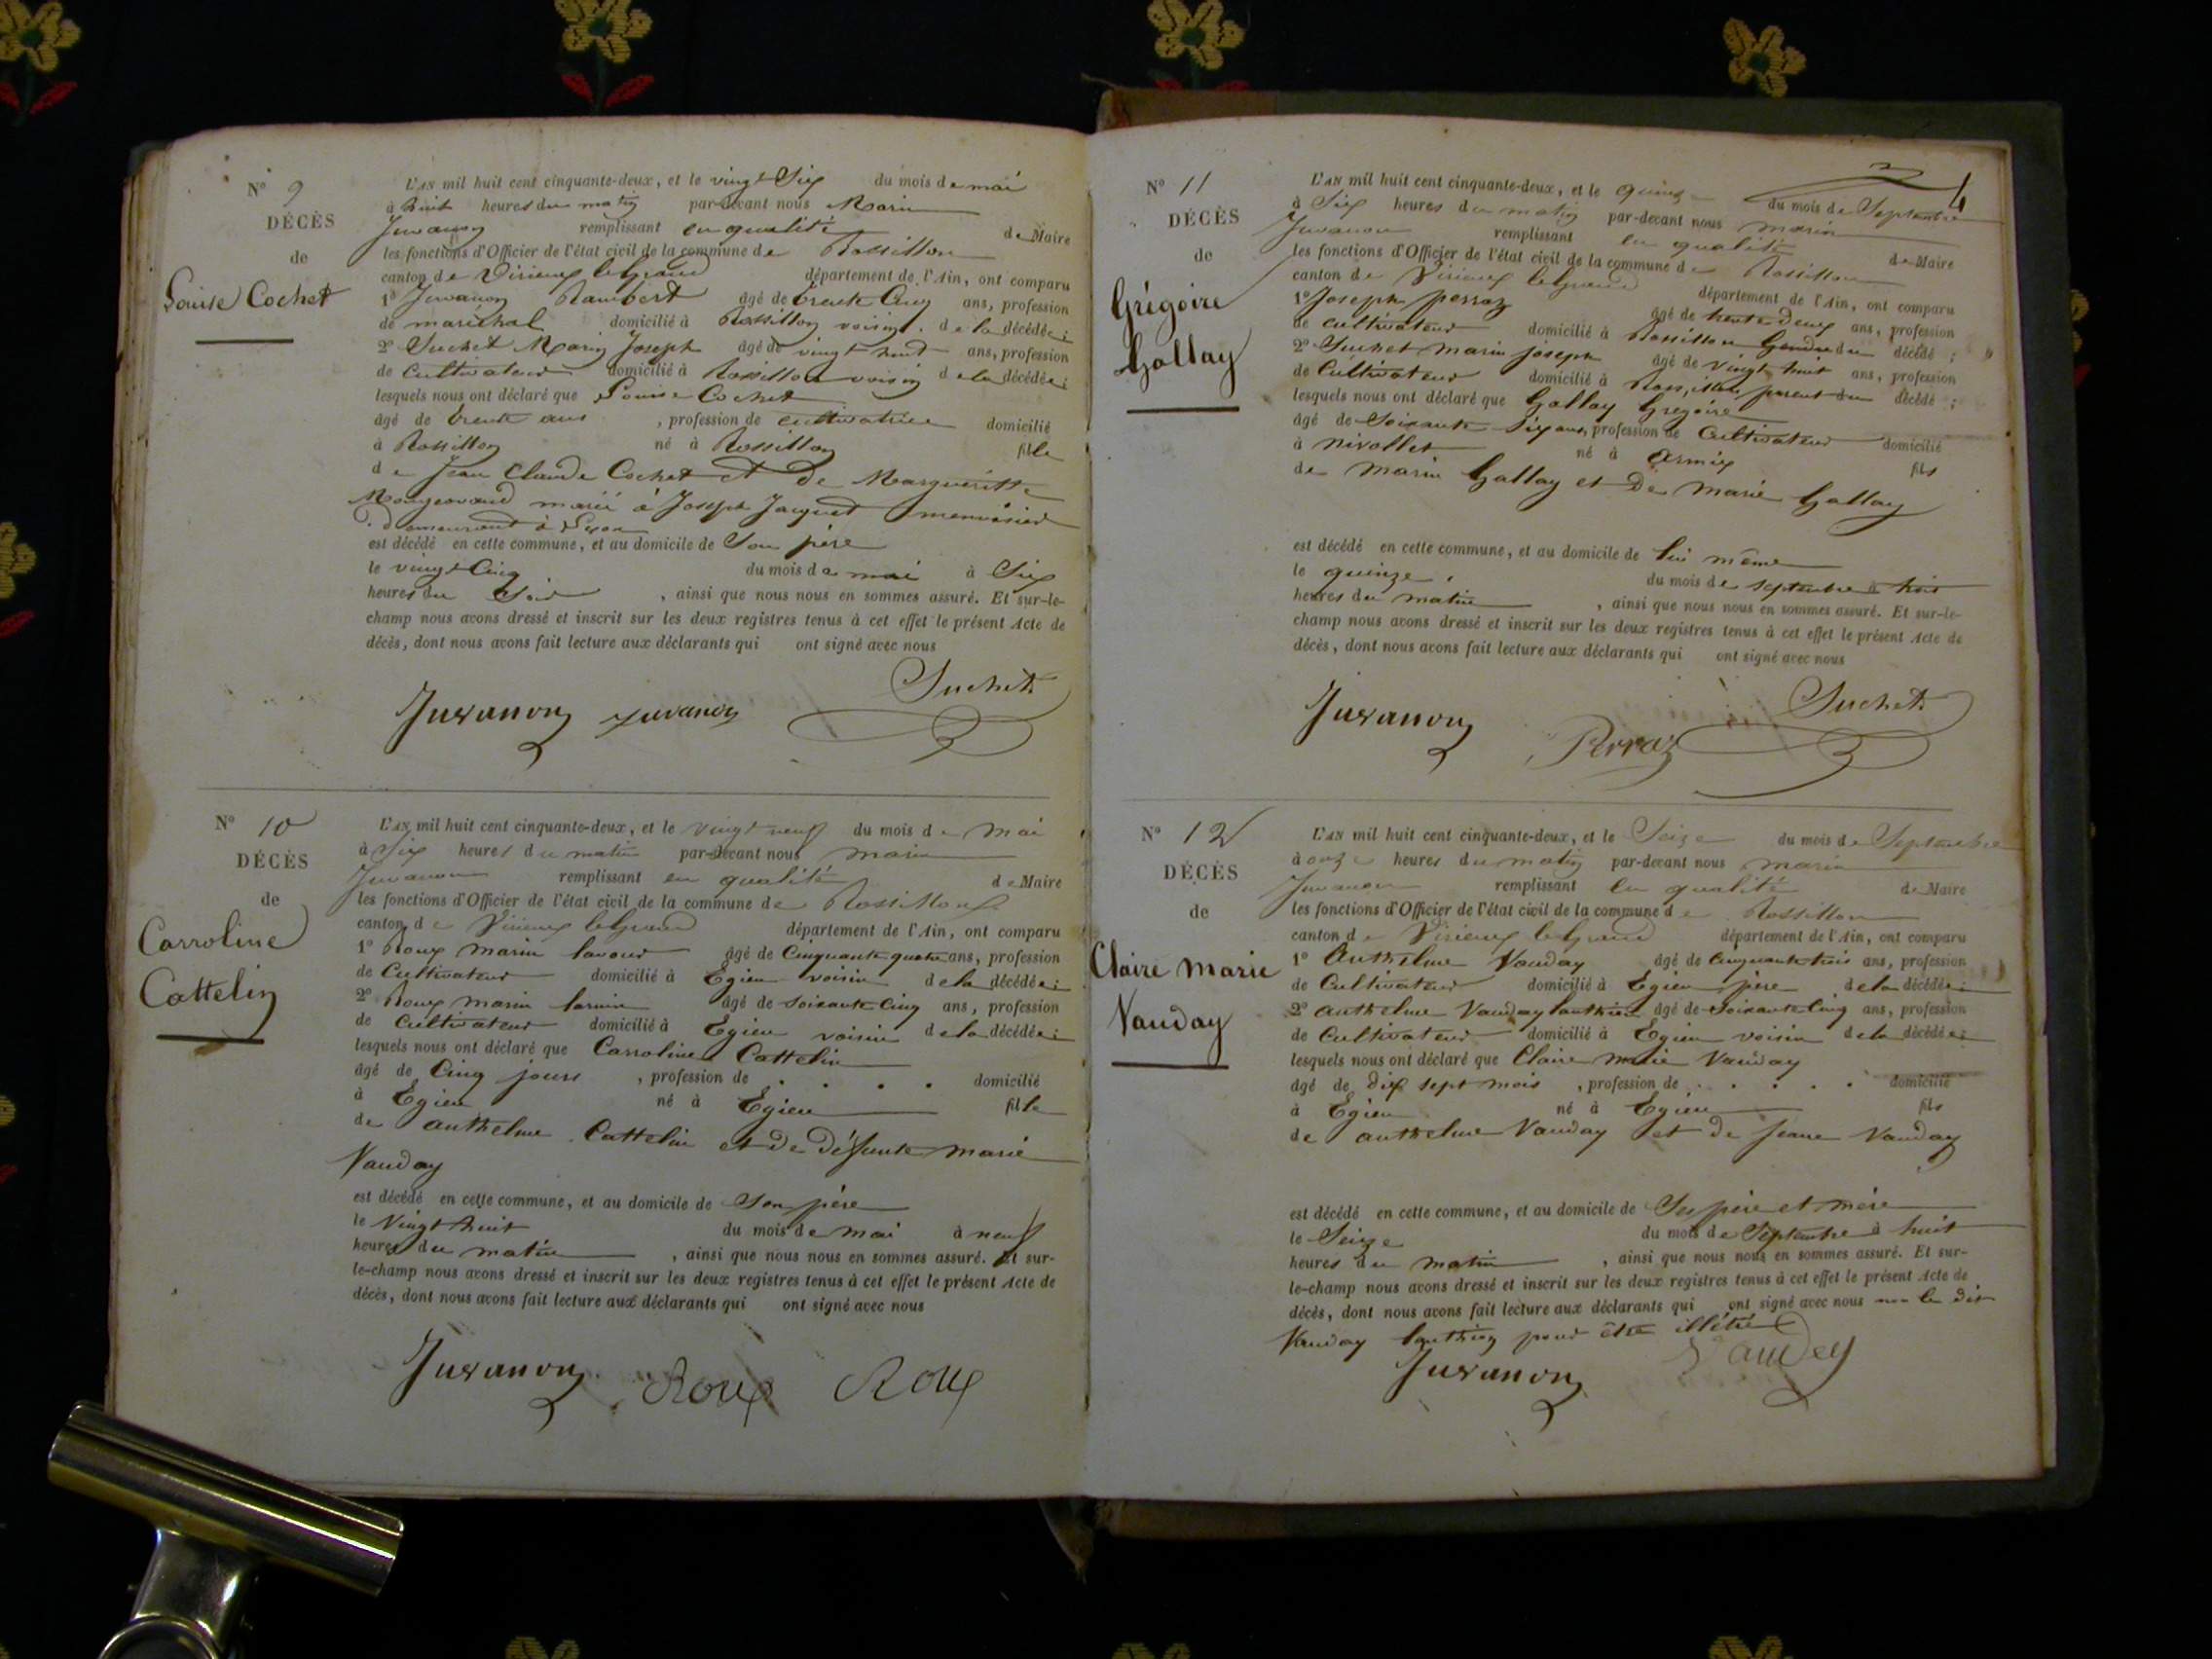 Nº 9
DÉCÈS
de
Louise Cochet
L'AN mil huit cent cinquante-deux, et le vingt Six du mois de mai
à huit heures du matin par-devant nous Marin
Juvanon remplissant en qualité de Maire
les fonctions d'Officier de l'état civil de la commune de Rossillon
canton de Virieux le Grand département de l'Ain, ont comparu
1º Juvanon Rambert âgé de trente Cinq ans, profession
de maréchal domicilié à Rossillon voisin de la décédée;
2º Suchet Marin Joseph âgé de vingt huit ans, profession
de Cultivateur domicilié à Rossillon voisin de la décédée;
lesquels nous ont déclaré que Louise Cochet
âgé de trente ans, profession de cultivatrice domicilié
à Rossillon né à Rossillon fille
de Jean Claude Cochet et De Marguéritte
mariée à Joseph Jacquet menuisier
demeurant à Lyon
est décédé en cette commune, et au domicile de Son père
le vingt Cinq du mois de mai à Six
heures du Soir, ainsi que nous nous en sommes assuré. Et sur-le-
champ nous avons dressé et inscrit sur les deux registres tenus à cet effet le présent Acte de
décès, dont nous avons fait lecture aux déclarants qui ont signé avec nous
Juvanon Juvanon Suchet
Nº 10
DÉCÈS
de
Carroline
Cattelin
L'AN mil huit cent cinquante-deux, et le vingt neuf du mois de Mai
à Six heures du matin par-devant nous marin
Juvanon remplissant en qualité de Maire
les fonctions d'Officier de l'état civil de la commune de Rossillon
canton de Virieux le Grand département de l'Ain, ont comparu
1º Roux marin âgé de Cinquante quatre ans, profession
de Cultivateur domicilié à Egieu voisin de la décédée;
2º Roux marin âgé de soixante Cinq ans, profession
de Cultivateur domicilié à Egieu voisin de la décédée;
lesquels nous ont déclaré que Carroline Cattelin
âgé de Cinq jours, profession de . . . . domicilié
à Egieu né à Egieu fille
de anthelme Cattelin et de déffunte marie
Vauday
est décédé en cette commune, et au domicile de Son père
le Vingt huit du mois de mai à neuf
heures du matin, ainsi que nous nous en sommes assuré. Et sur-
le-champ nous avons dressé et inscrit sur les deux registres tenus à cet effet le présent Acte de
décès, dont nous avons fait lecture aux déclarants qui ont signé avec nous
Juvanon Roux Roux
4
Nº 11
DÉCÈS
de
Grégoire
Gallay
L'AN mil huit cent cinquante-deux, et le quinze du mois de Septembre
à Six heures du matin par-devant nous marin
Juvanon remplissant en qualité de Maire
les fonctions d'Officier de l'état civil de la commune de Rossillon
canton de Virieux le Grand département de l'Ain, ont comparu
1º Joseph perraz âgé de trente deux ans, profession
de cultivateur domicilié à Rossillon Gendre du décédé;
2º Suchet marin joseph âgé de vingt huit ans, profession
de Cultivateur domicilié à Rossillon parent du décédé;
lesquels nous ont déclaré que Gallay Gregoire
âgé de Soixante Six ans, profession de Cultivateur domicilié
à nivollet né à Armix fils
de marin Gallay et De marie Gallay
est décédé en cette commune, et au domicile de lui même
le quinze du mois de septembre à trois
heures du matin, ainsi que nous nous en sommes assuré. Et sur-le-
champ nous avons dressé et inscrit sur les deux registres tenus à cet effet le présent Acte de
décès, dont nous avons fait lecture aux déclarants qui ont signé avec nous
Juvanon Perraz Suchet
Nº 12
DÉCÈS
de
Claire marie
Vauday
L'AN mil huit cent cinquante-deux, et le Seize du mois de Septembre
à onze heures du matin par-devant nous marin
Juvanon remplissant en qualité de Maire
les fonctions d'Officier de l'état civil de la commune de Rossillon
canton de Virieux le Grand département de l'Ain, ont comparu
1º Anthelme Vauday âgé de cinquante trois ans, profession
de Cultivateur domicilié à Egieu père de la décédée;
2º anthelme Vauday âgé de soixante Cinq ans, profession
de Cultivateur domicilié à Egieu voisin de la décédée;
lesquels nous ont déclaré que Claire marie Vauday
âgé de dix sept mois, profession de . . . . . domicilié
à Egieu né à Egieu fils
de anthelme Vauday et de Jeane Vauday
est décédé en cette commune, et au domicile de Ses père et mère
le Seize du mois de Septembre à huit
heures du matin, ainsi que nous nous en sommes assuré. Et sur-
le-champ nous avons dressé et inscrit sur les deux registres tenus à cet effet le présent Acte de
décès, dont nous avons fait lecture aux déclarants qui ont signé avec nous non le dit
Vauday pour être illétré
Juvanon Vauday